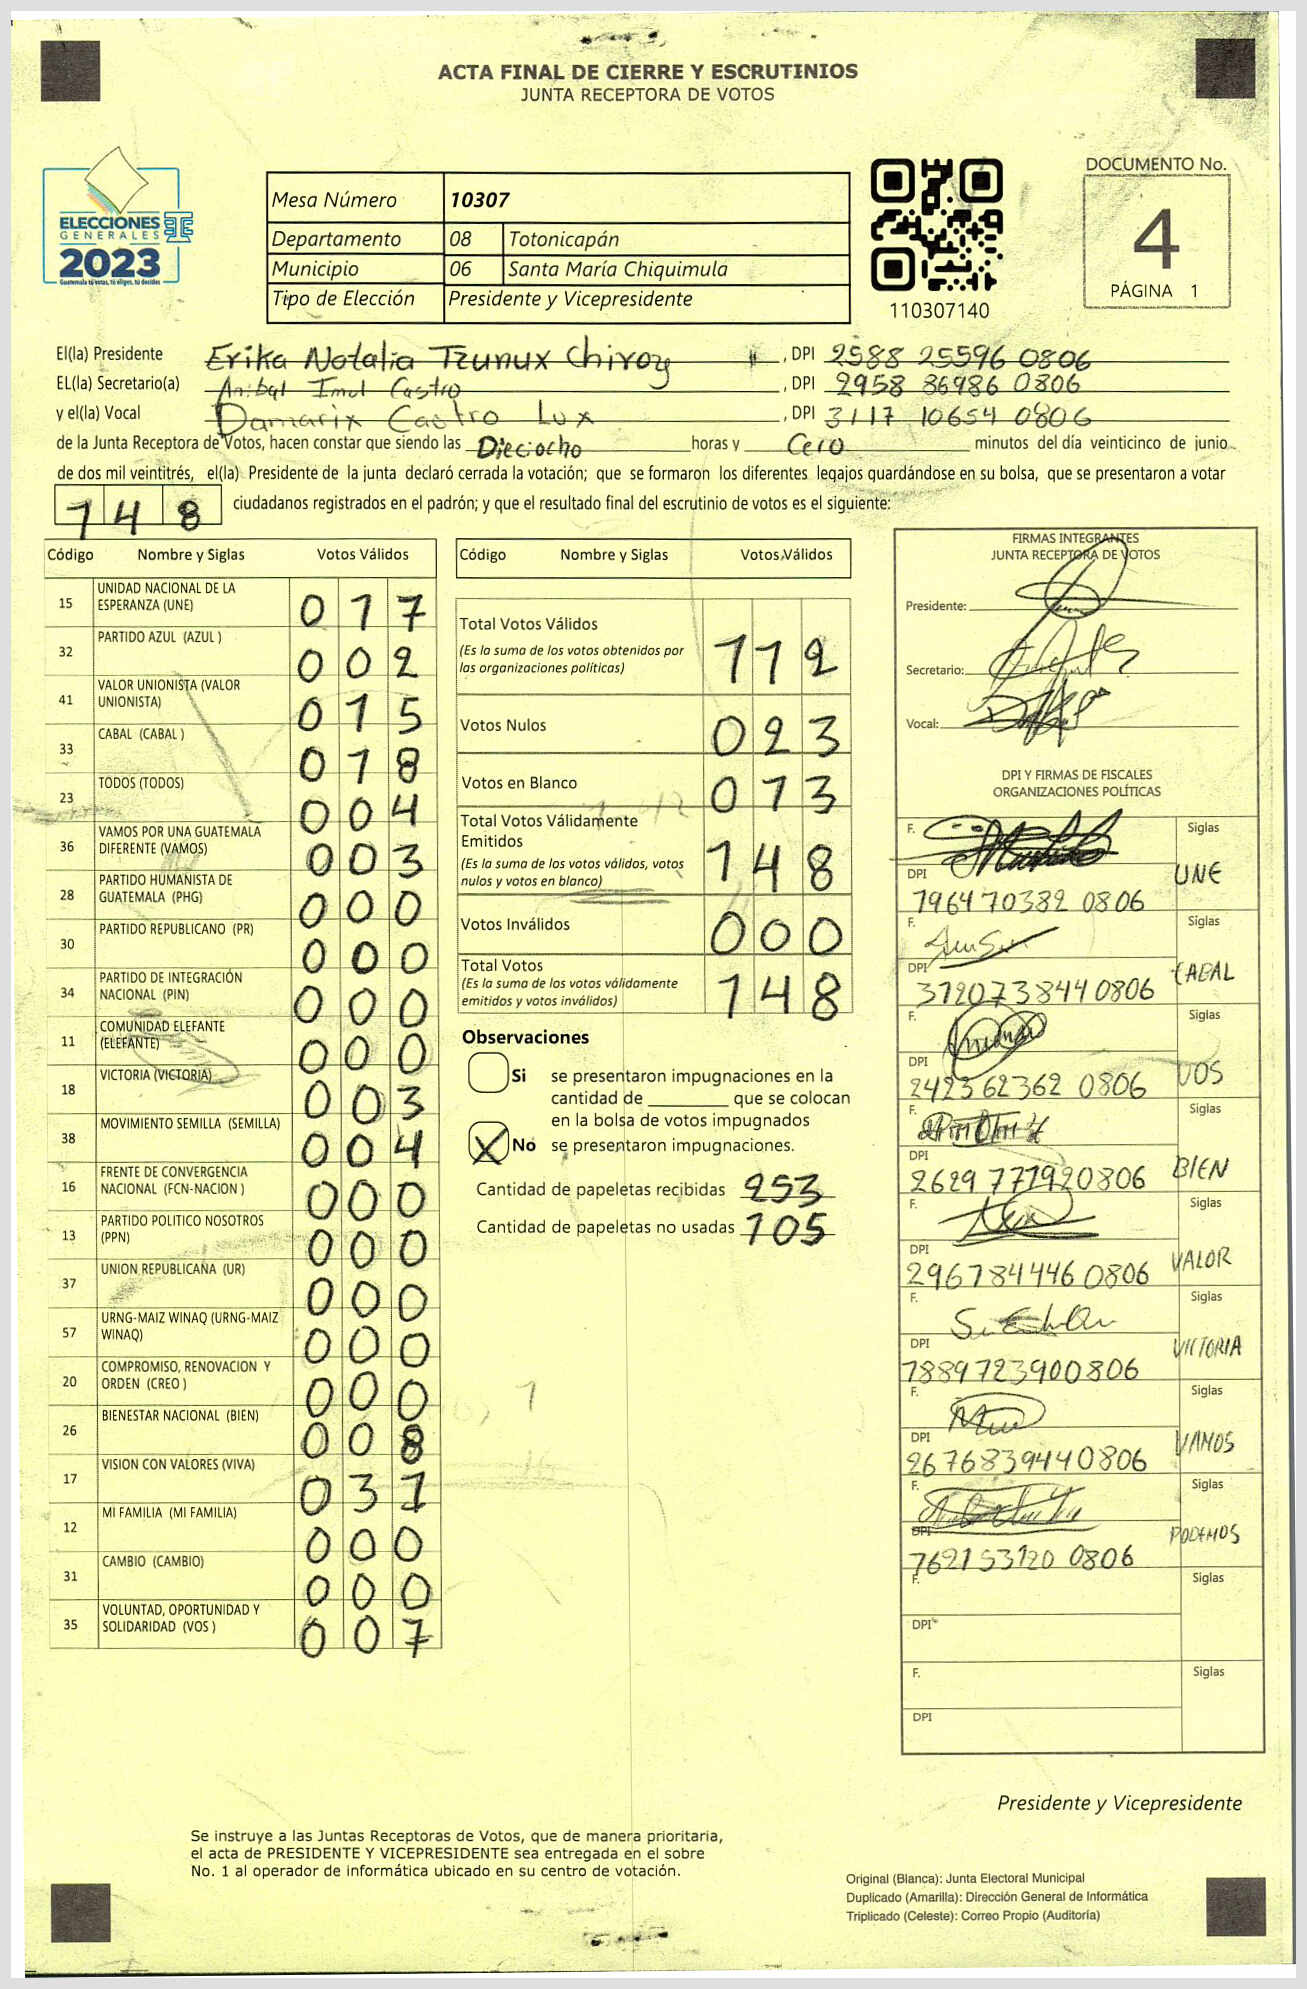 ACTA FINAL DE CIERRE Y ESCRUTINIOS
JUNTA RECEPTORA DE VOTOS
ELECCIONES
GENERALES
2023
Guatemala tú votas, tú eliges, tú decides
Mesa Número 10307
Departamento 08 Totonicapán
Municipio 06 Santa María Chiquimula
Tipo de Elección Presidente y Vicepresidente
110307140
DOCUMENTO No.
4
PÁGINA 1
El(la) Presidente Erika Natalia Tzunux Chiroy, DPI 2588 25596 0806
EL(la) Secretario(a) Anibal Imul Castro, DPI 2958 86986 0806
y el(la) Vocal Damarix Castro Lux, DPI 3117 10654 0806
de la Junta Receptora de Votos, hacen constar que siendo las Dieciocho horas y Cero minutos del día veinticinco de junio
de dos mil veintitrés, el(la) Presidente de la junta declaró cerrada la votación; que se formaron los diferentes legajos guardándose en su bolsa, que se presentaron a votar
148 ciudadanos registrados en el padrón; y que el resultado final del escrutinio de votos es el siguiente:
Código Nombre y Siglas Votos Válidos
15 UNIDAD NACIONAL DE LA ESPERANZA (UNE) 017
32 PARTIDO AZUL (AZUL ) 002
41 VALOR UNIONISTA (VALOR UNIONISTA) 015
33 CABAL (CABAL ) 018
23 TODOS (TODOS) 004
36 VAMOS POR UNA GUATEMALA DIFERENTE (VAMOS) 003
28 PARTIDO HUMANISTA DE GUATEMALA (PHG) 000
30 PARTIDO REPUBLICANO (PR) 000
34 PARTIDO DE INTEGRACIÓN NACIONAL (PIN) 000
11 COMUNIDAD ELEFANTE (ELEFANTE) 000
18 VICTORIA (VICTORIA) 003
38 MOVIMIENTO SEMILLA (SEMILLA) 004
16 FRENTE DE CONVERGENCIA NACIONAL (FCN-NACION ) 000
13 PARTIDO POLITICO NOSOTROS (PPN) 000
37 UNION REPUBLICANA (UR) 000
57 URNG-MAIZ WINAQ (URNG-MAIZ WINAQ) 000
20 COMPROMISO, RENOVACION Y ORDEN (CREO ) 000
26 BIENESTAR NACIONAL (BIEN) 008
17 VISION CON VALORES (VIVA) 031
12 MI FAMILIA (MI FAMILIA) 000
31 CAMBIO (CAMBIO) 000
35 VOLUNTAD, OPORTUNIDAD Y SOLIDARIDAD (VOS ) 007
Código Nombre y Siglas Votos Válidos
Total Votos Válidos 112
(Es la suma de los votos obtenidos por
las organizaciones políticas)
Votos Nulos 023
Votos en Blanco 013
Total Votos Válidamente
Emitidos 148
(Es la suma de los votos válidos, votos
nulos y votos en blanco)
Votos Inválidos 000
Total Votos 148
(Es la suma de los votos válidamente
emitidos y votos inválidos)
Observaciones
Si se presentaron impugnaciones en la
cantidad de ________ que se colocan
en la bolsa de votos impugnados
X No se presentaron impugnaciones.
Cantidad de papeletas recibidas 253
Cantidad de papeletas no usadas 105
FIRMAS INTEGRANTES
JUNTA RECEPTORA DE VOTOS
Presidente:
Secretario:
Vocal:
DPI Y FIRMAS DE FISCALES
ORGANIZACIONES POLÍTICAS
F. Siglas
DPI UNE
1964 70382 0806
F. Siglas
DPI CABAL
3120738440806
F. Siglas
DPI VOS
242362362 0806
F. Siglas
DPI BIEN
2629 771920806
F. Siglas
DPI VALOR
2967844460806
F. Siglas
DPI VICTORIA
1889723900806
F. Siglas
DPI VAMOS
2676839440806
F. Siglas
DPI PODEMOS
762153120 0806
F. Siglas
DPI
F. Siglas
DPI
Presidente y Vicepresidente
Se instruye a las Juntas Receptoras de Votos, que de manera prioritaria,
el acta de PRESIDENTE Y VICEPRESIDENTE sea entregada en el sobre
No. 1 al operador de informática ubicado en su centro de votación.
Original (Blanca): Junta Electoral Municipal
Duplicado (Amarilla): Dirección General de Informática
Triplicado (Celeste): Correo Propio (Auditoría)